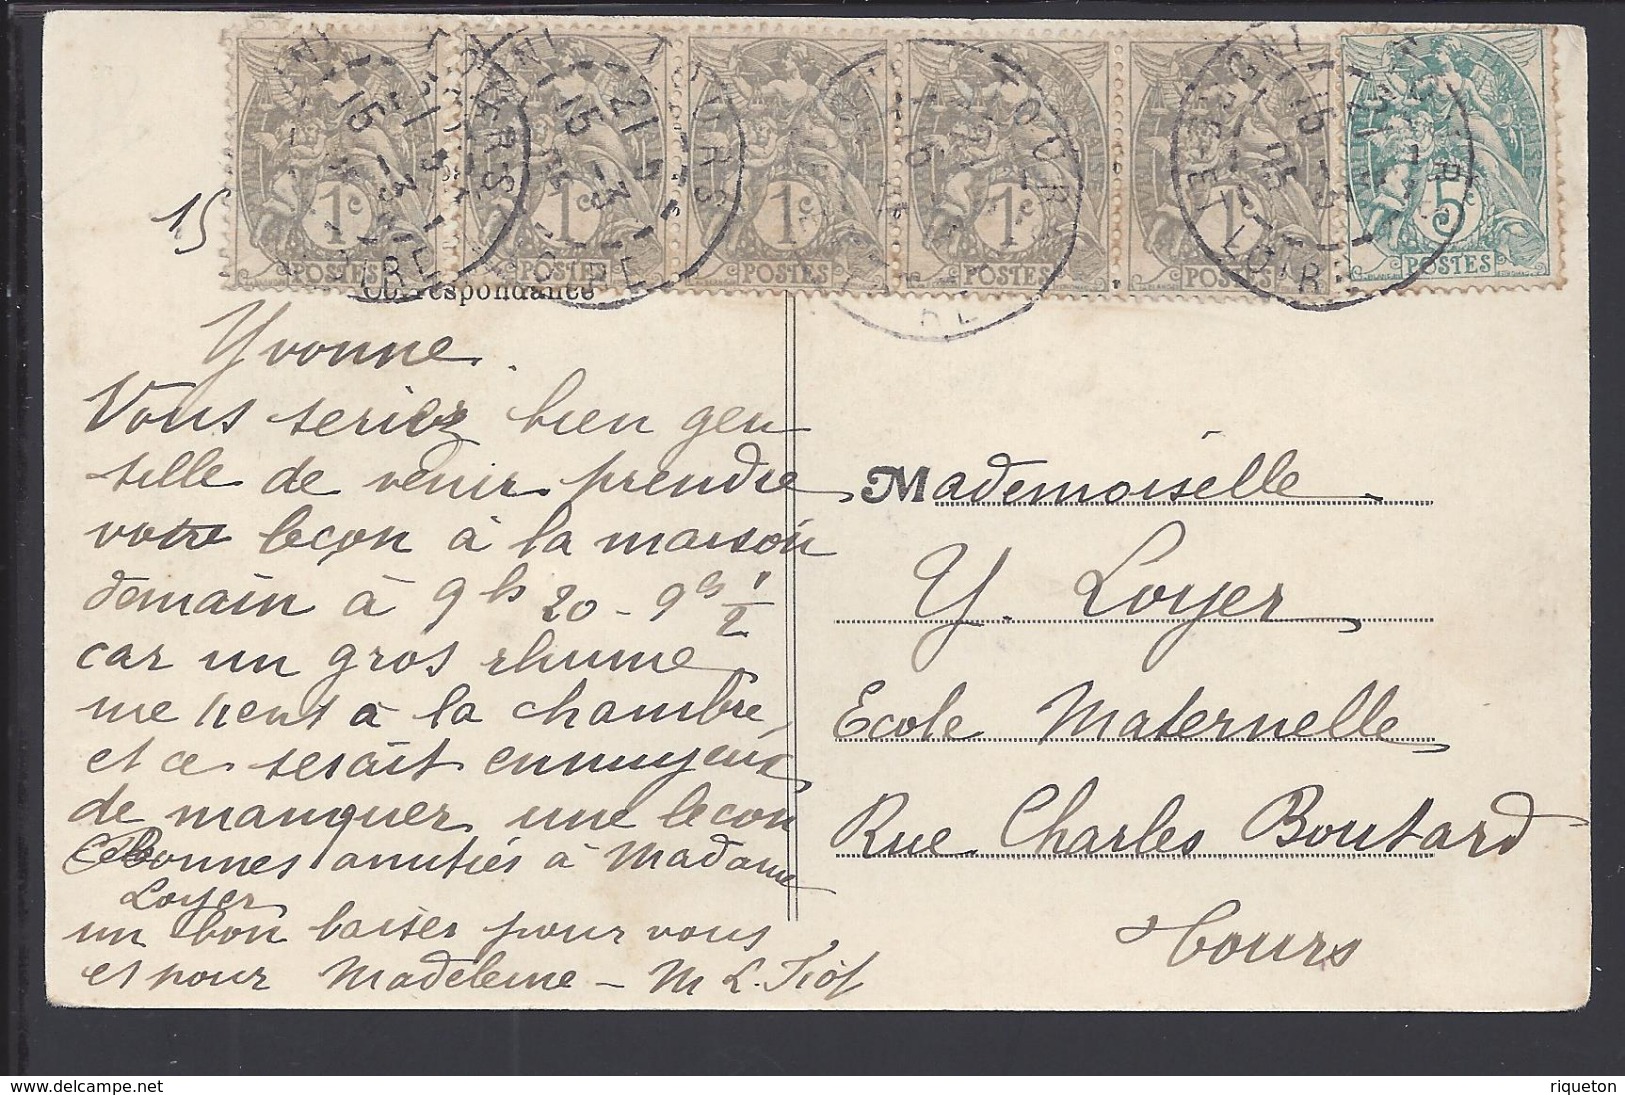 1c POSTES
1c POSTES
1c POSTES
1c POSTES
1c POSTES
5c POSTES
TOURS
TOURS
INDRE-ET-LOIRE
15
Correspondance
Yvonne.
Vous seriez bien gen
tille de venir prendre
votre leçon à la maison
demain à 9 hs 20 - 9 hs 1/2
car un gros rhume
me tient à la chambre
et ce serait ennuyeux
de manquer une leçon
bonnes amitiés à Madame
Loyer
un bon baiser pour vous
et pour Madeleine - M L.
Mademoiselle
Y. Loyer
Ecole Maternelle
Rue Charles Boutard
Tours
www.delcampe.net
riqueton